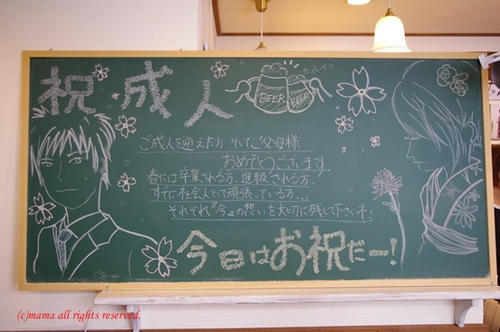 祝成人
BEER
BEER
ご成人を迎えた方 そしてご父母様
おめでとうございます
春には卒業される方、進級される方
すでに社会人として頑張っている方…
それぞれ"今"の想いを大切に残して下さいネ!
今日はお祝だー!
(c)mama all rights reserved.